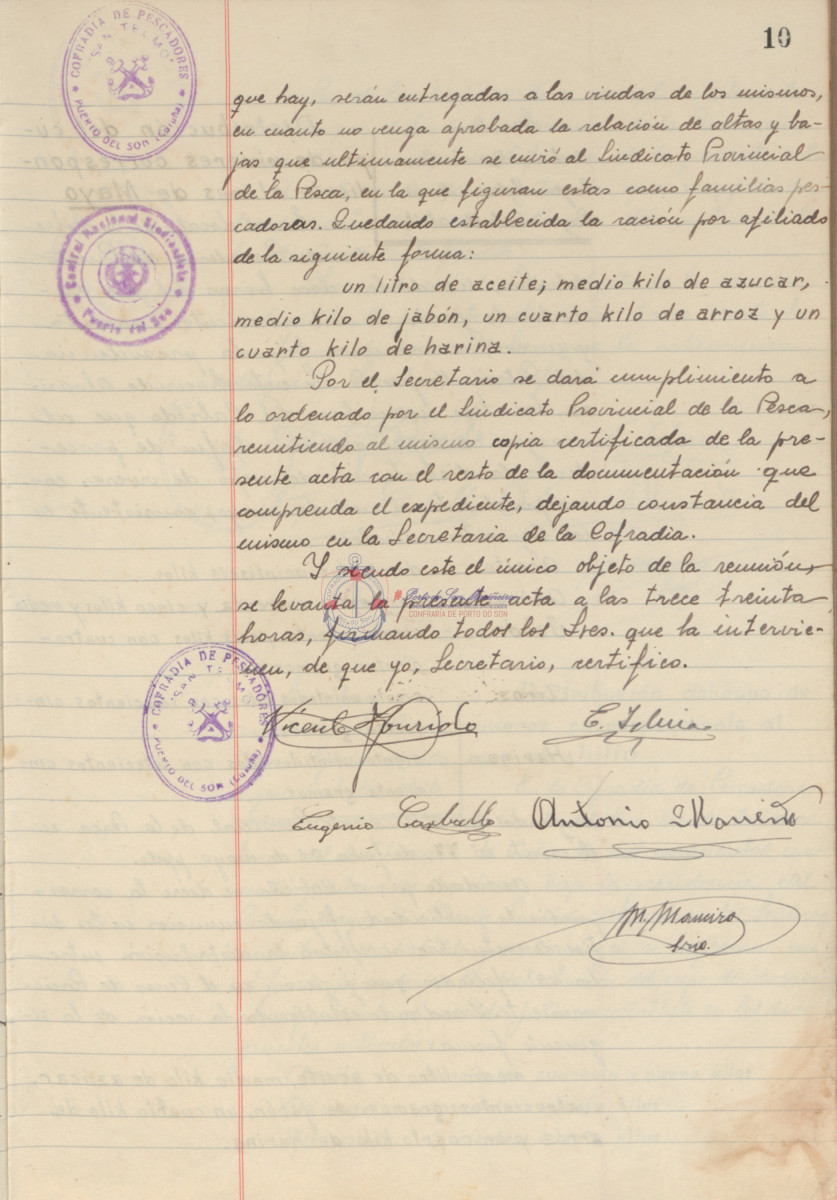 10
COFRADIA DE PESCADORES
"SAN TELMO"
PUERTO DEL SON (Coruña)
que hay, serán entregadas a las viudas de los mismos,
en cuanto no venga aprobada la relación de altas y ba-
jas que ultimamente se envió al Sindicato Provincial
de la Pesca, en la que figuran estas como familias pes-
cadoras. Quedando establecida la ración por afiliado
de la siguiente forma:
Central Nacional Sindicalista
Puerto del Son
un litro de aceite; medio kilo de azucar,
medio kilo de jabón, un cuarto kilo de arroz y un
cuarto kilo de harina.
Por el Secretario se dará cumplimiento a
lo ordenado por el Sindicato Provincial de la Pesca,
remitiendo al mismo copia certificada de la pre-
sente acta con el resto de la documentación que
comprenda el expediente, dejando constancia del
mismo en la Secretaria de la Cofradia.
Y siendo este el único objeto de la reunión,
se levanta la presente acta a las trece treinta
horas, firmando todos los Sres. que la intervie-
nen, de que yo, Secretario, certifico.
CONFRARÍA DE PORTO DO SON
COFRADIA DE PESCADORES
"SAN TELMO"
PUERTO DEL SON (Coruña)
Vicente
Eugenio Carballo
Antonio
M. Mamiro
Srio.